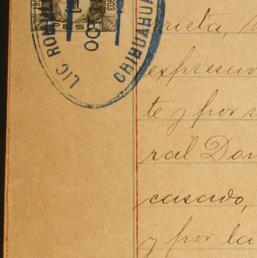 LIC. ROM
CHIHUAHUA
OCB
rieta,
expresu
te y por s
ral Don
casado,
y por la